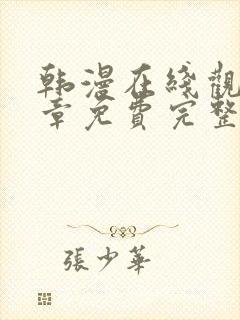 韩漫在綫觀
章免費完整
張少華